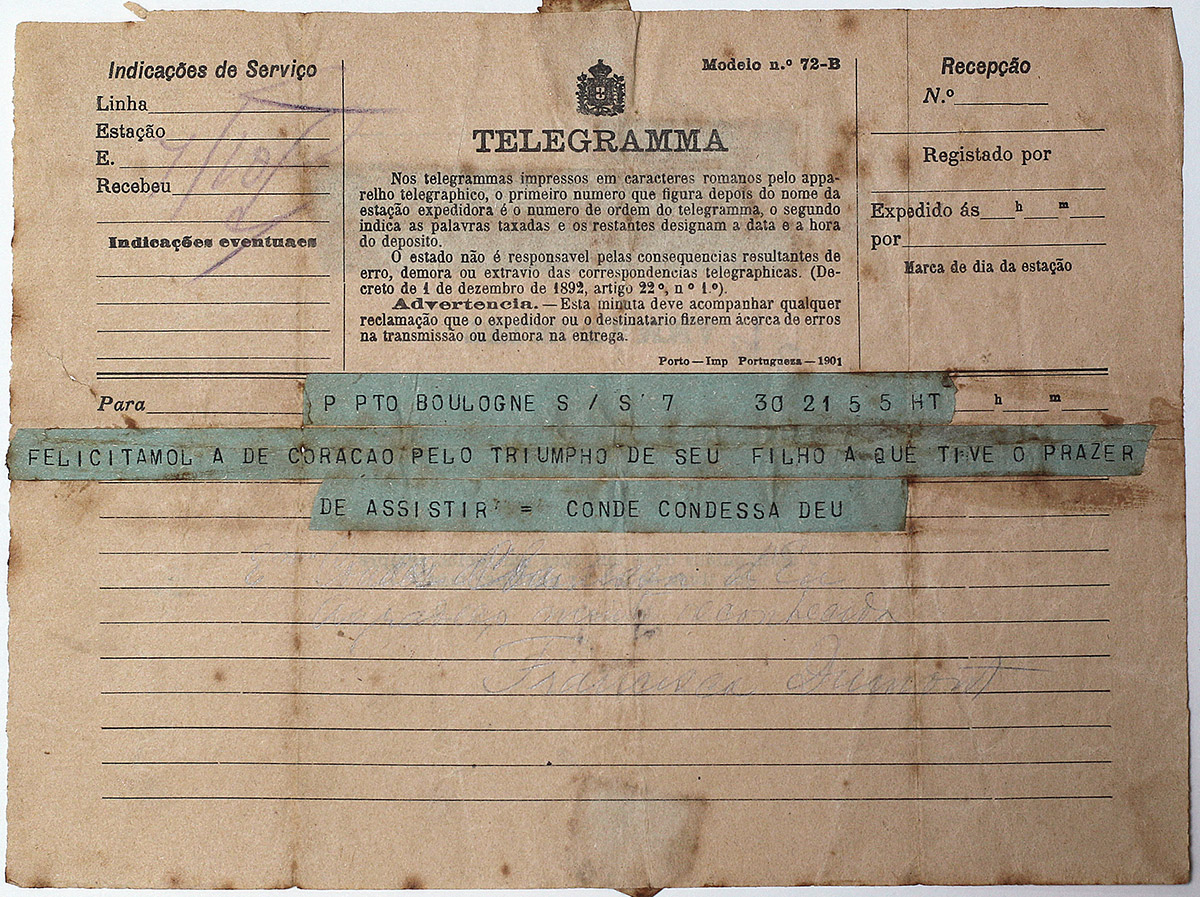 Indicações de Serviço
Linha
Estação
E.
Recebeu
7/10/
Indicações eventuaes
Modelo n.º 72-B
TELEGRAMMA
Nos telegrammas impressos em caracteres romanos pelo appa-
relho telegraphico, o primeiro numero que figura depois do nome da
estação expedidora é o numero de ordem do telegramma, o segundo
indica as palavras taxadas e os restantes designam a data e a hora
do deposito.
O estado não é responsavel pelas consequencias resultantes de
erro, demora ou extravio das correspondencias telegraphicas. (De-
creto de 1 de dezembro de 1892, artigo 22º, nº 1º).
Advertencia.—Esta minuta deve acompanhar qualquer
reclamação que o expedidor ou o destinatario fizerem ácerca de erros
na transmissão ou demora na entrega.
Porto—Imp Portugueza—1901
Recepção
N.º
Registado por
Expedido ás h m
por
Marca de dia da estação
Para P PTO BOULOGNE S / S 7 30 21 5 5 HT h m
FELICITAMOL A DE CORACAO PELO TRIUMPHO DE SEU FILHO A QUE TIVE O PRAZER
DE ASSISTIR = CONDE CONDESSA DEU
d'Eu
Francisca Dumont